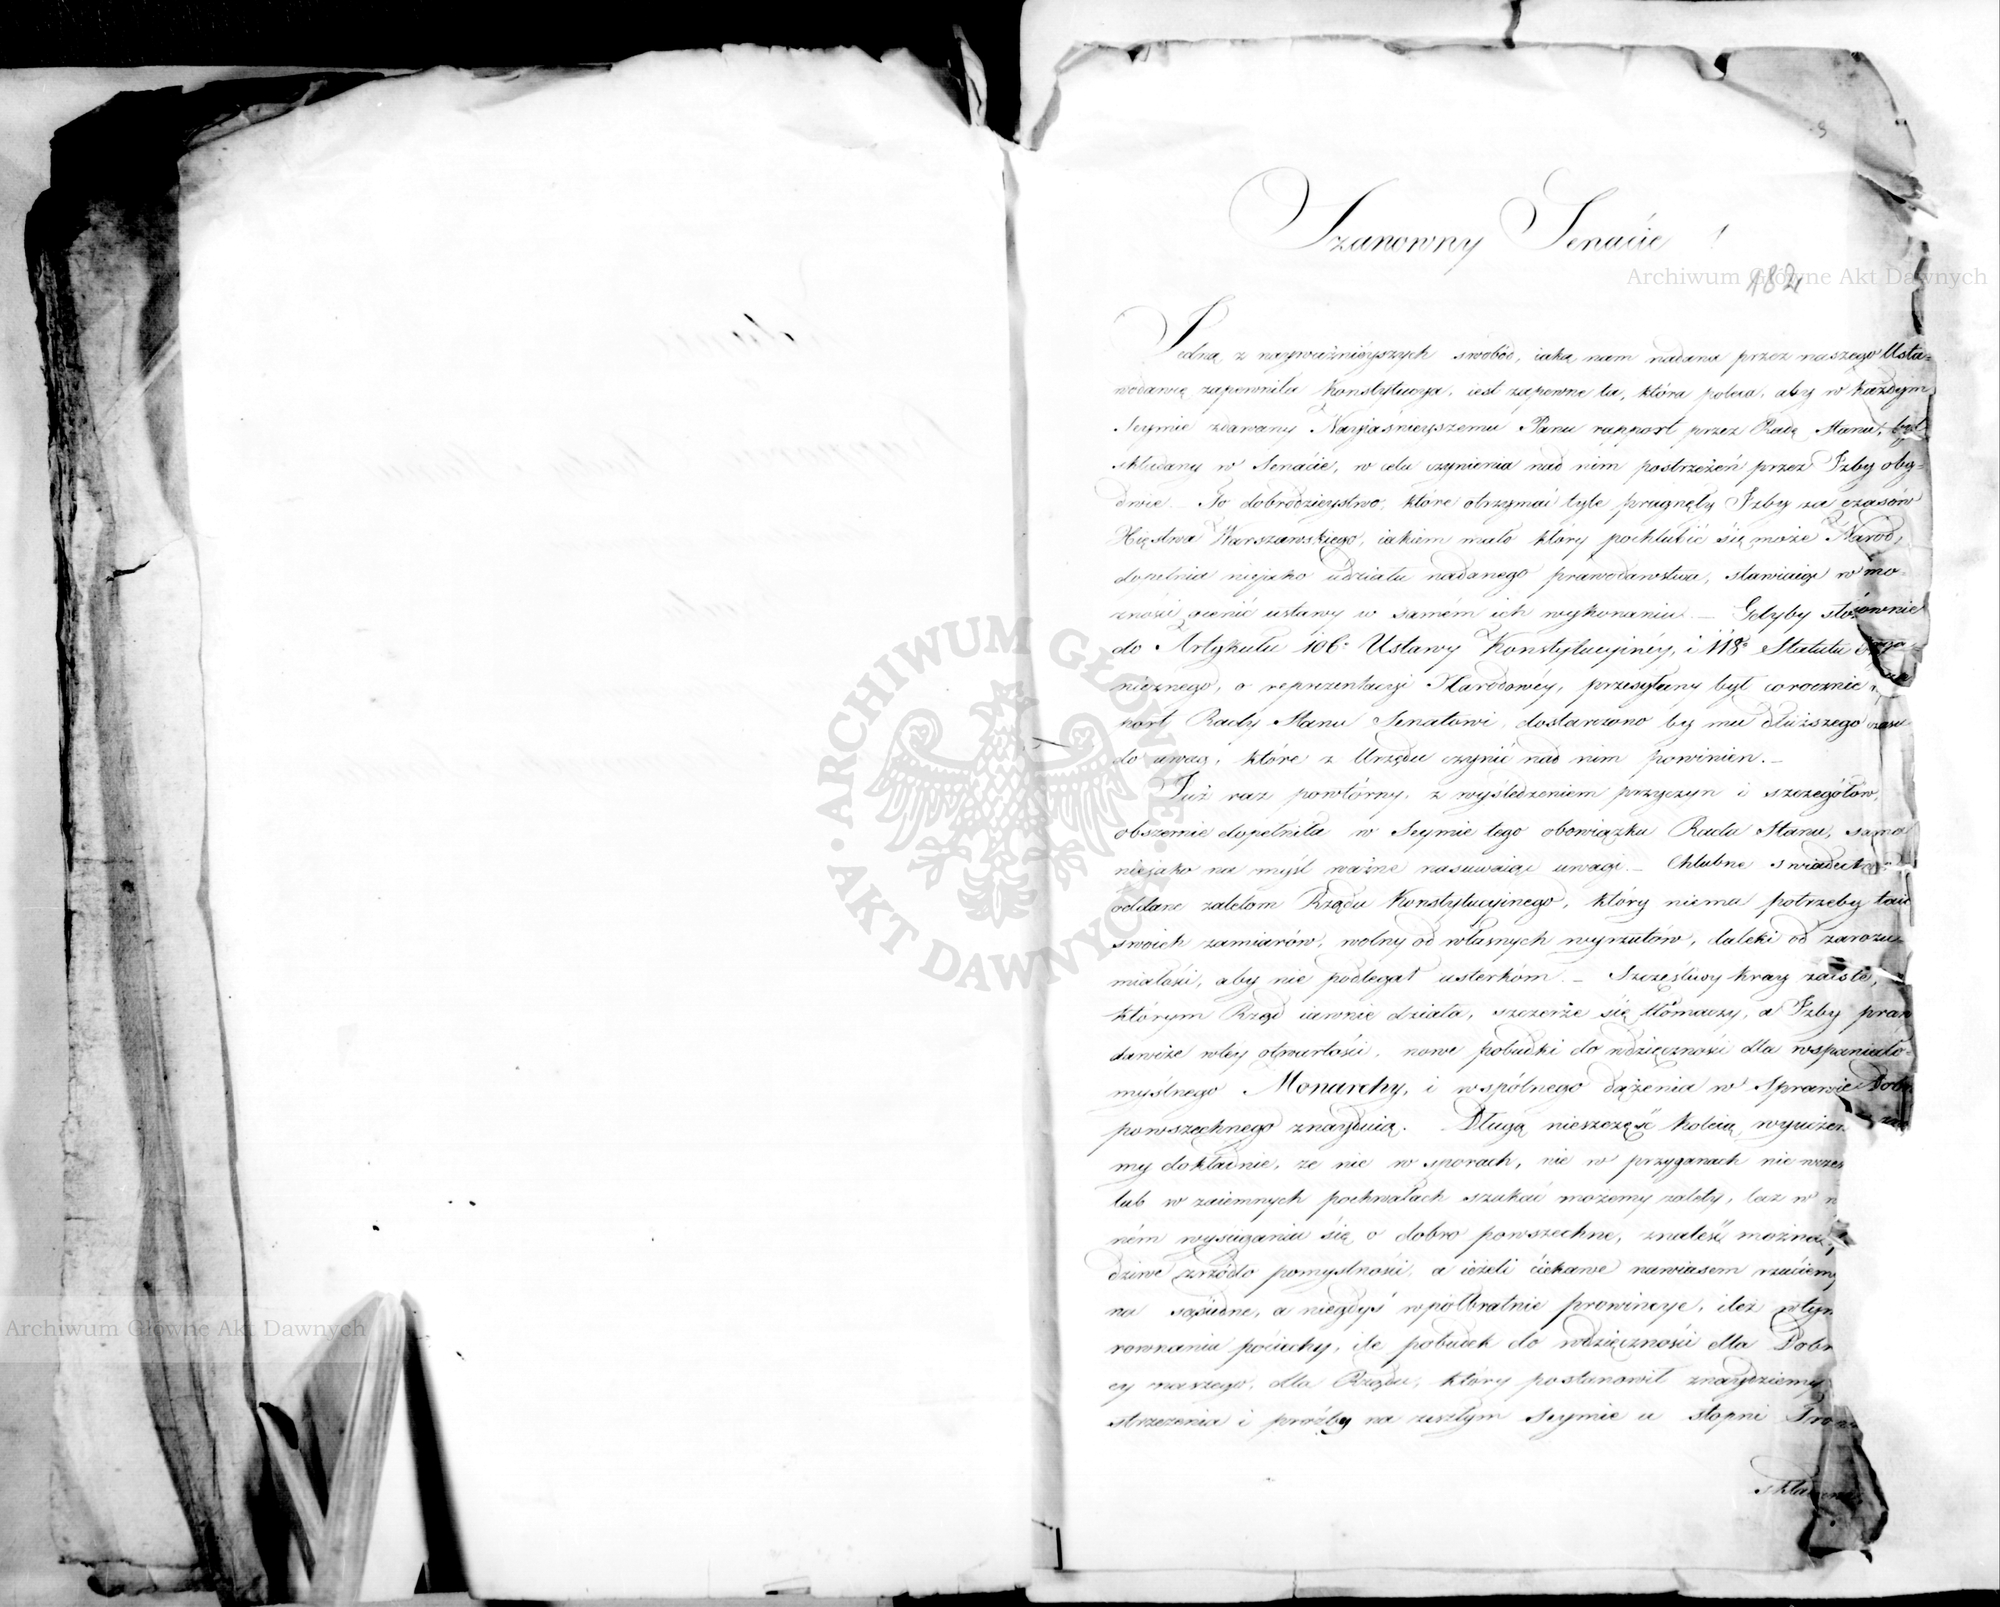 9
Szanowny Senacie !
182
Archiwum Główne Akt Dawnych
Jedną z nayważnieyszych swobód, iaką nam nadana przez naszego Usta-
wodawcę zapewniła Konstytucya, iest zapewne ta, która poleca, aby w każdym
Seymie zdawany Nayjaśnieyszemu Panu rapport przez Radę Stanu, był
składany w Senacie, w celu czynienia nad nim postrzeżeń przez Izby oby-
dwie. — To dobrodzieystwo, które otrzymać tyle pragnęły Izby za czasów
Xięstwa Warszawskiego, iakiem mało który pochlubić się może Naród,
dopełnia niejako udziału nadanego prawodawstwa, stawiaiąc w mo-
żności ocenić ustawy w samém ich wykonaniu. — Gdyby stosownie
do Artykułu 106º Ustawy Konstytucyjnéy, i 118º Statutu Orga-
nicznego, o reprezentacyi Narodowéy, przesyłany był corocznie
port Rady Stanu Senatowi, dostarczono by mu dłuższego czasu
do uwag, które z Urzędu czynić nad nim powinien. —
Już raz powtórny, z wyśledzeniem przyczyn i szczegółów,
obszernie dopełniła w Seymie tego obowiązku Rada Stanu, sama
niejako na myśl ważne nasuwaiąc uwagi. — Chlubne świadectwo
oddane zaletom Rządu Konstytucyjnego, który niema potrzeby taić
swoich zamiarów, wolny od własnych wyrzutów, daleki od zarozu-
miałości, aby nie podlegał usterkóm. — Szczęśliwy kray zaiste,
którym Rząd iawnie działa, szczerze się tłómaczy, a Izby praw
dawcze w tey otwartości, nowe pobudki do wdzięczności dla wspaniało-
myślnego Monarchy, i wspólnego dążenia w Sprawie Dobra
powszechnego znayduią. Długą nieszczęść koleią wyuczeni
my dokładnie, że nie w sporach, nie w przyganach nie wczes
lub w zaiemnych pochwałach szukać możemy zalety, lecz w
ném wyściganiu się o dobro powszechne, znaleść można,
dziwe źrzódło pomyślności, a ieżeli ciekawe nawiasem rzuciemy
na sąsiedne, a niegdyś wpółbratnie prowincye, ileż w tym
równaniu pociechy, ile pobudek do wdzięczności dla Dobr
cy naszego, dla Rządu, który postanowił znaydziemy
strzeżenia i proźby na zeszłym Seymie u stopni Tronu
składane
ARCHIWUM GŁÓWNE AKT DAWNYCH
Archiwum Główne Akt Dawnych